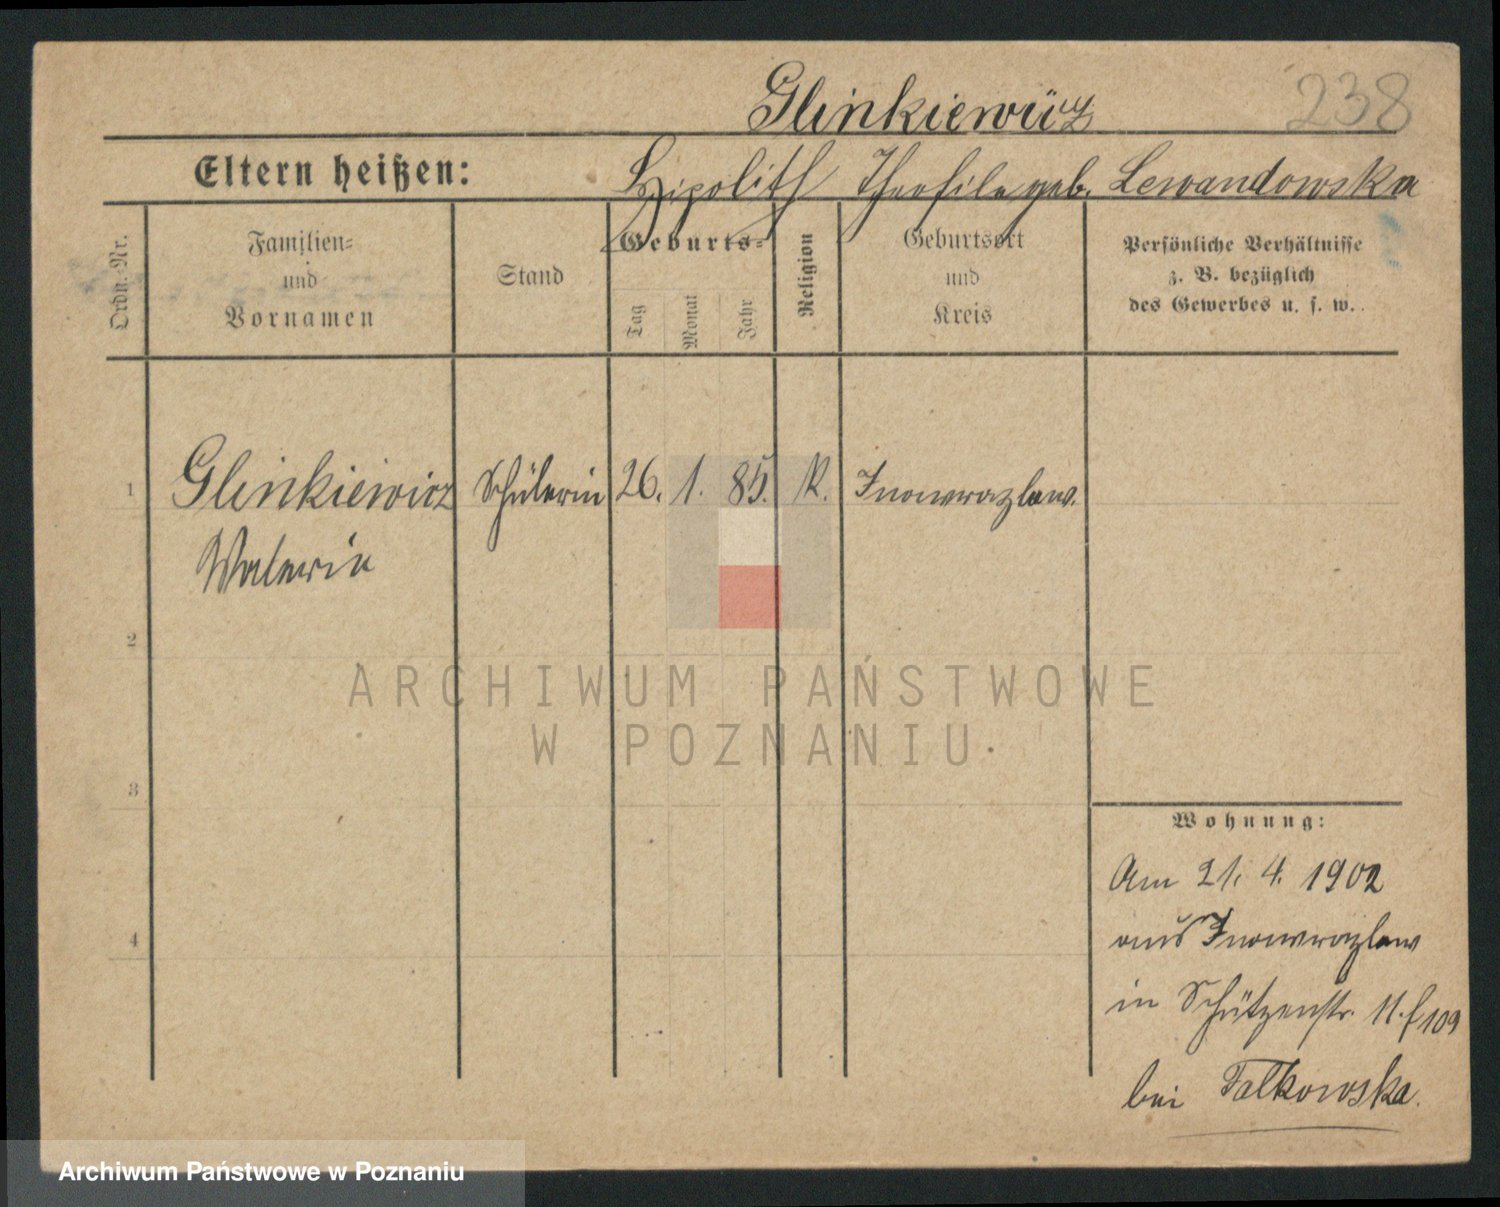 Glinkiewicz 238
Eltern heißen: Hipolith Theofila geb. Lewandowska
Ordn.-Nr.
Familien-
und
Vornamen
Stand
Geburts-
Tag
Monat
Jahr
Religion
Geburtsort
und
Kreis
Persönliche Verhältnisse
z. B. bezüglich
des Gewerbes u. s. w.
1 Glinkiewicz Schülerin 26. 1. 85. K. Inowrazlaw.
Waleria
2
ARCHIWUM PAŃSTWOWE
W POZNANIU
3
Wohnung:
Am 21. 4. 1902
4
aus Inowrazlaw
in Schützenstr. 11. f 109
bei Talkowska.
Archiwum Państwowe w Poznaniu